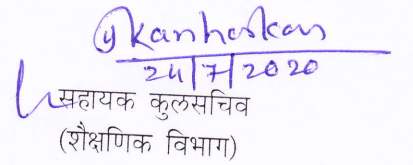 Kanhaskar
24/7/2020
सहायक कुलसचिव
(शैक्षणिक विभाग)